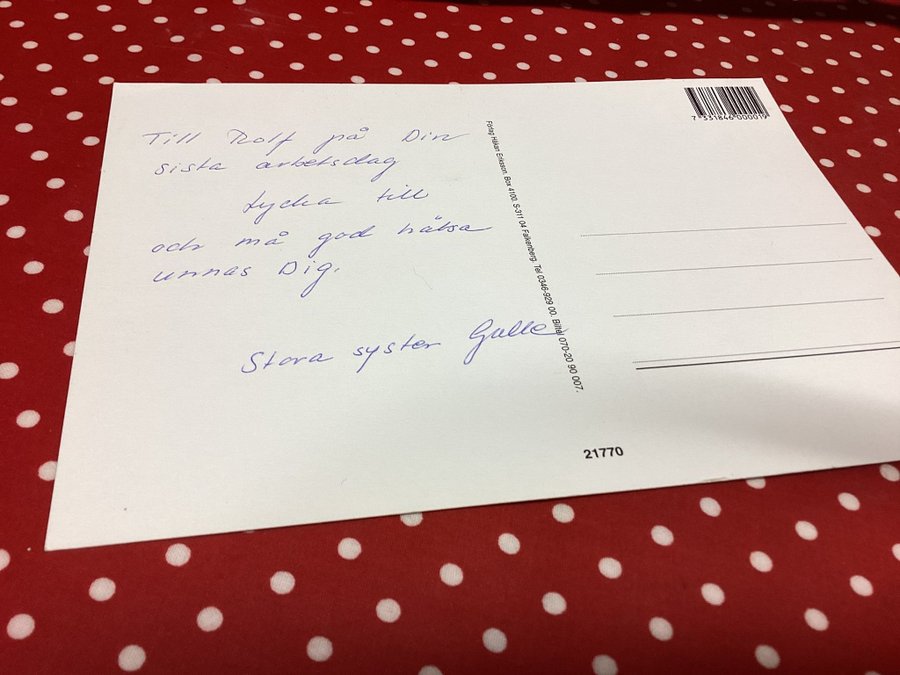 Till Rolf på Din
sista arbetsdag
Lycka till
och må god hälsa
unnas Dig.
Stora syster Gulle
Förlag Håkan Eriksson. Box 4100. S-311 04 Falkenberg. Tel 0346-929 00. Biltel 070-20 90 007.
7 331846 000019
21770